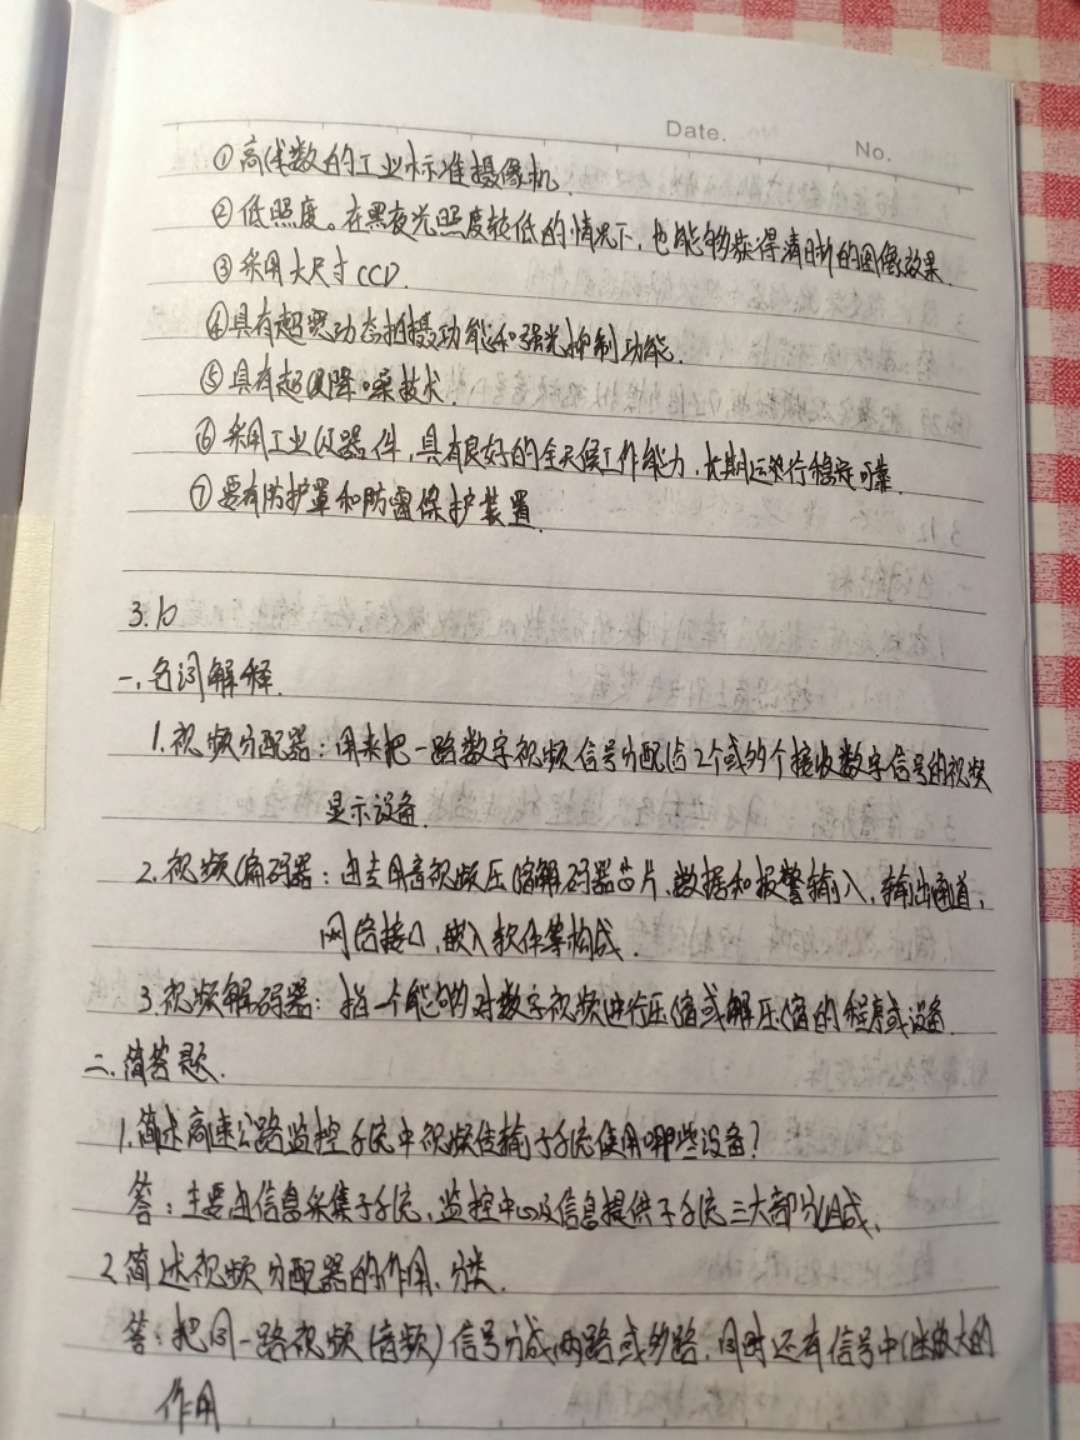 Date. No.
①高线数的工业标准摄像机.
②低照度。在黑夜光照度较低的情况下,也能够获得清晰的图像效果.
③采用大尺寸CCD.
④具有超宽动态拍摄功能和强光抑制功能.
⑤具有超级降噪技术.
⑥采用工业级器件,具有良好的全天候工作能力,长期运行稳定可靠.
⑦要有防护罩和防雷保护装置.
3.6
一、名词解释.
1.视频分配器:用来把一路数字视频信号分配给2个或多个接收数字信号的视频
显示设备.
2.视频编码器:由专用音视频压缩解码器芯片、数据和报警输入、输出通道,
网络接口,嵌入软件等构成.
3.视频解码器:指一个能够对数字视频进行压缩或解压缩的程序或设备.
二、简答题.
1.简述高速公路监控系统中视频传输子系统使用哪些设备?
答:主要由信息采集子系统、监控中心及信息提供子系统三大部分组成.
2.简述视频分配器的作用、分类.
答:把同一路视频(音频)信号分成两路或多路,同时还有信号中继放大的
作用